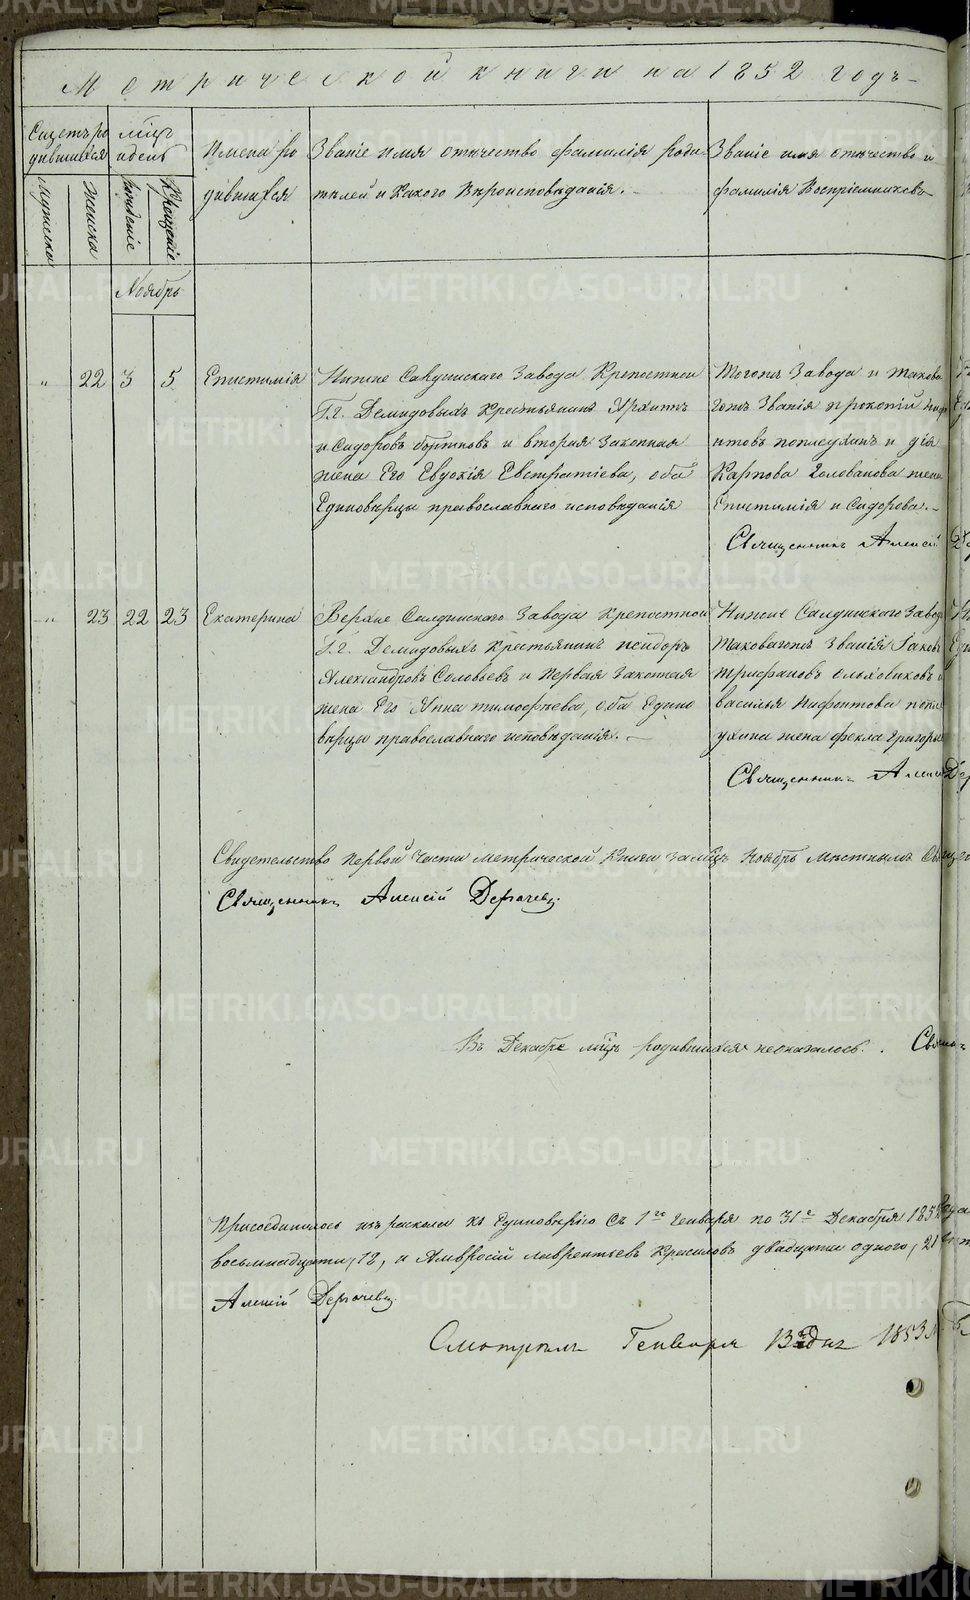 Метрической книги на 1852 годъ
Счетъ ро
дившихся
Мужеска
Женска
мѣцъ
и день
рожденіе
Крещеніе
Имена ро
дившихся
Званіе имя отчество фамилія роди
телей и какого Вѣроисповѣданія.
Званіе имя отчество и
фамилія Воспріемниковъ
Ноябрь
" 22 3 5 Епистимія
Нижне Салдинскаго Завода Крепостной
Г.г. Демидовыхъ Крестьянинъ Архипъ
Сидоровъ и вторая Законная
жена Его Евдокія Евстратіева, оба
Единовѣрцы православнаго исповѣданія
Тогожъ Завода и такова
гожъ Званія Прокопій
Карпова Голованова жена
Епистимія Сидорова.
Священникъ Алексей
" 23 22 23 Екатерина
Верхне Салдинскаго Завода Крепостной
Г.г. Демидовыхъ Крестьянинъ Исидоръ
Александровъ Соловьевъ и Первая Законная
жена Его Анна Тимофѣева, оба Едино
вѣрцы православнаго исповѣданія.
Нижне Салдинскаго Завода
таковагожъ Званія Іаковъ
Трифановъ Ольховиковъ и
василья Нифонтова попл
ухина жена фекла Григорь
Священникъ Алексей
Свидетельство Первой Части метрической Книги за мѣцъ Ноябрь
Священникъ Алексей Дерячевъ
Въ Декабре мѣцѣ родившихся неоказалось.
Присоединилось изъ раскола къ Единоверію Съ 1го Генваря по 31е Декабря 185
восьмнадцати, 18, и Амвросій Лаврентьевъ Красиловъ двадцати одного, 21
Алексей Дерячевъ
Смотрелъ Генваря 13 дня 1853
METRIKI.GASO-URAL.RU